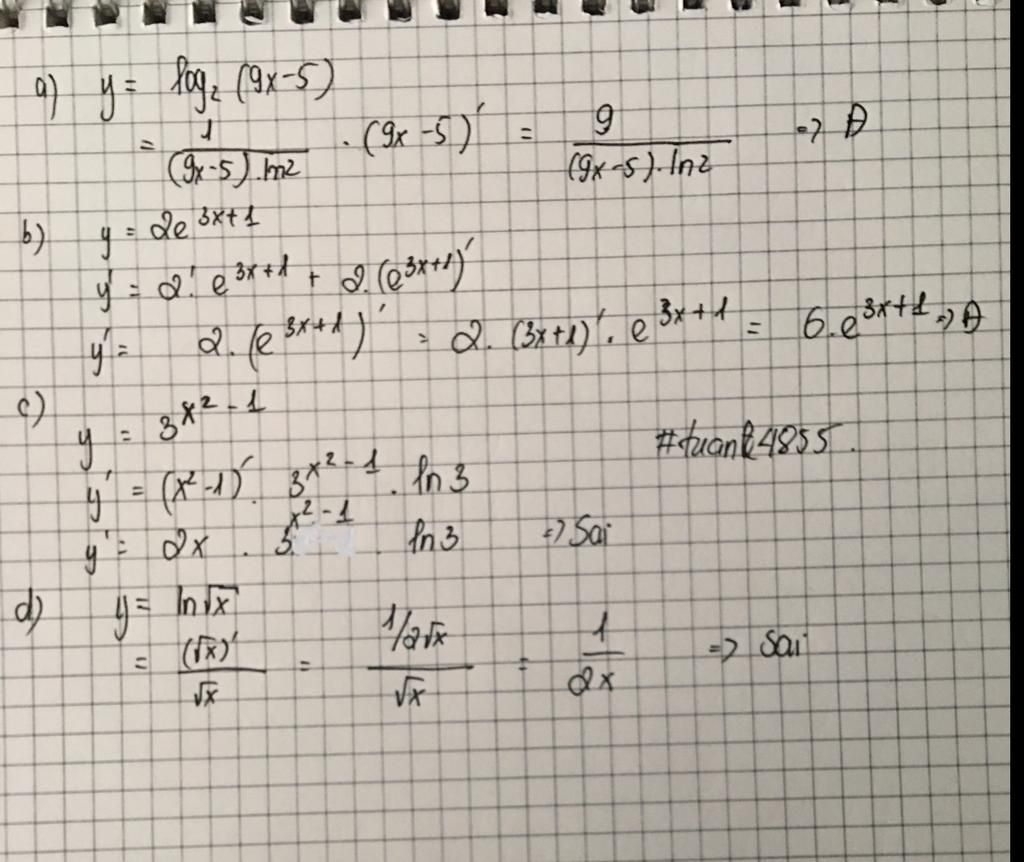 a) y = log₂ (9x-5)
= 1/((9x-5).ln2) . (9x-5)' = 9/((9x-5).ln2) => Đ
b) y = 2e^(3x+1)
y' = 2'. e^(3x+1) + 2.(e^(3x+1))'
y' = 2.(e^(3x+1))' = 2.(3x+1)'. e^(3x+1) = 6.e^(3x+1) => Đ
c)
y = 3^(x²-1)
#tuank4855.
y' = (x²-1)'. 3^(x²-1). ln3
y' = 2x . 3^(x²-1) . ln3 => Sai
d) y = ln√x
= (√x)'/√x = (1/2√x)/√x = 1/2x => Sai